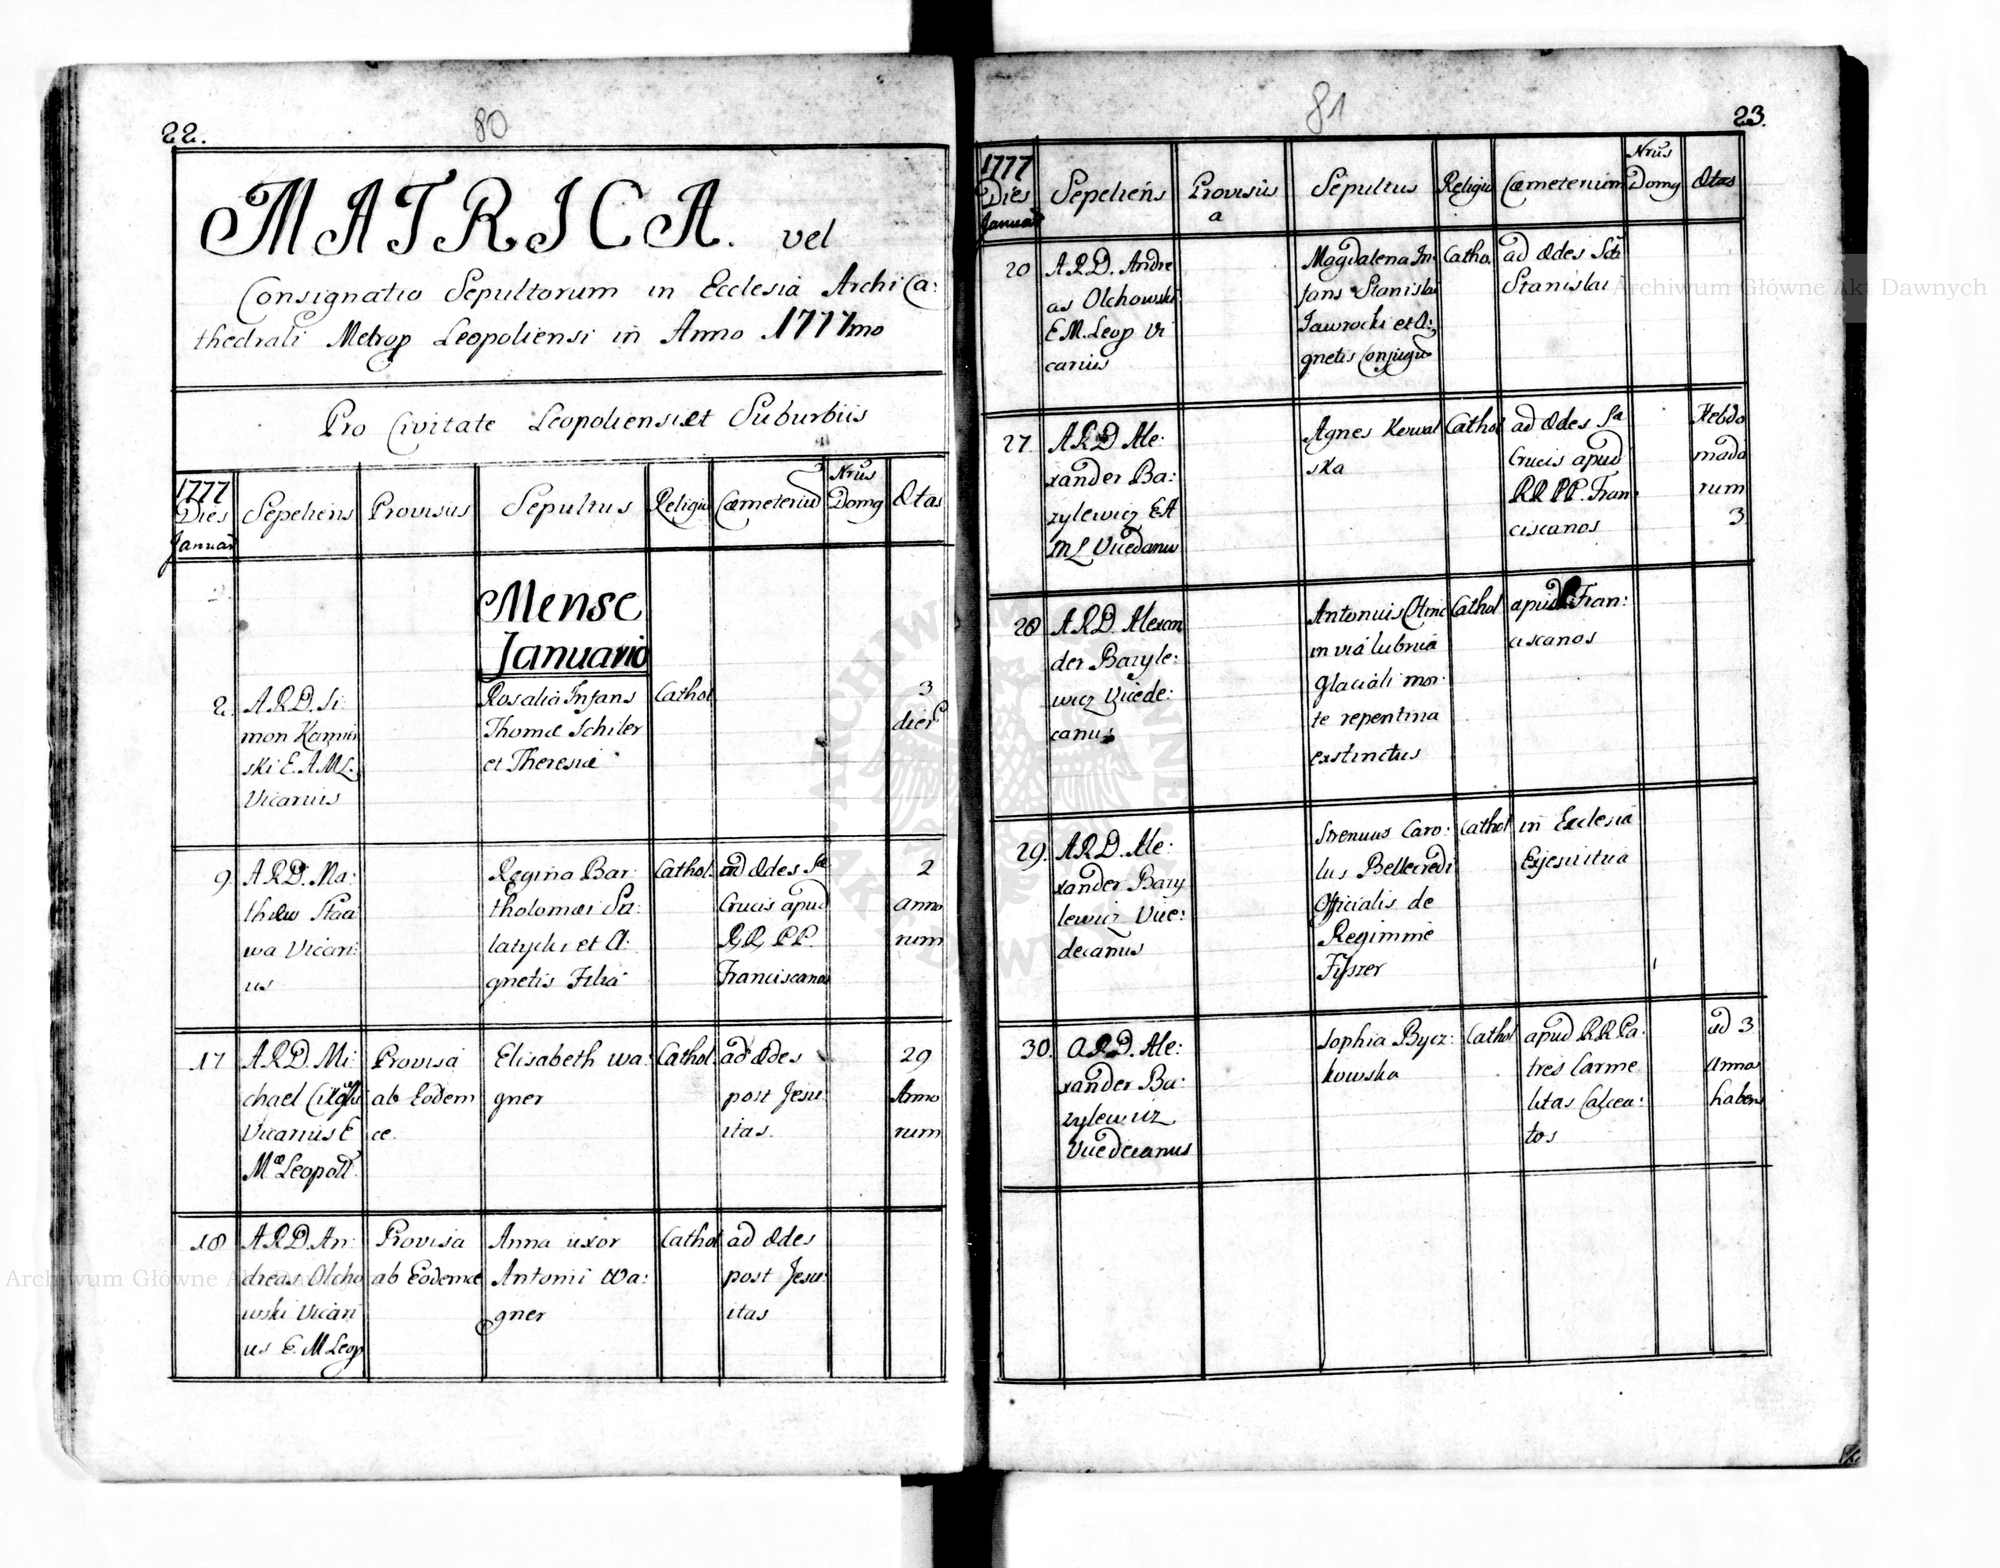 22.
80
MATRICA. vel
Consignatio Sepultorum in Ecclesia ArchiCa:
thedrali Metrop Leopoliensi in Anno 1777mo
Pro Civitate Leopoliensi et Suburbiis
1777
Dies
Januar
Sepeliens
Provisus
Sepultus
Religio
Cæmeterium
Nrus
Domq
Ætas
Mense
Januario
2.
A.R.D. Si:
mon
ski E.A.M.L.
Vicarius
Rosalia Infans
Thomæ Schiler
et Theresiæ
Cathol
3
dier
9
A.R.D. Ma:
wa Vicari:
us
Regina Bar:
tholomæi Sa:
latycki et A:
gnetis Filia
Cathol.
ad Ædes Sæ
Crucis apud
RR. PP.
Franciscanos
2
anno
rum
17
A.R.D. Mi:
chael
Vicarius E
Mæ Leopoll.
Provisa
ab Eodem
ce.
Elisabeth Wa:
gner
Cathol.
ad Ædes
post Jesu:
itas.
29
Anno
rum
18
A.R.D. An:
dreas Olcho
wski Vicari
us E. M Leop
Provisa
ab Eodem
Anna uxor
Antonii Wa:
gner
Cathol
ad Ædes
post Jesu:
itas
81
23.
1777
Dies
Januar
Sepeliens
Provisus
a
Sepultus
Religio
Cæmeterium
Nrus
Domq
Ætas
20
A.R.D. Andre
as Olchowski
E.M. Leop Vi
carius
Magdalena In:
fans Stanislai
Jawrocki et A:
gnetis Conjugu
Catho.
ad Ædes Sti
Stanislai
27
A.R.D. Ale:
xander Ba:
zylewicz EA
ML Vicedanu
Agnes Kowal
ska
Cathol
ad Ædes Sa
Crucis apud
RR PP. Fran
ciscanos
Hebdo
mada
rum
3
28
A.R.D. Alexan
der Bazyle:
wicz Vicede:
canus
Antonius
in via lubrica
glaciali mor:
te repentina
exstinctus
Cathol
apud Fran:
ciscanos
29.
A.R.D. Ale:
xander Bazy
lewicz Vice:
decanus
Strenuus Caro:
lus Bellecredi
Officialis de
Regimine
Fiszer
Cathol
in Ecclesia
Exjesuitica
30.
A.R.D. Ale:
xander Ba:
zylewicz
Vicedecanus
Sophia Bycz:
kowska
Cathol
apud RR Pa:
tres Carme
litas Calcea:
tos
ad 3
Annos
habens
Archiwum Główne Akt Dawnych
Archiwum Główne Akt Dawnych